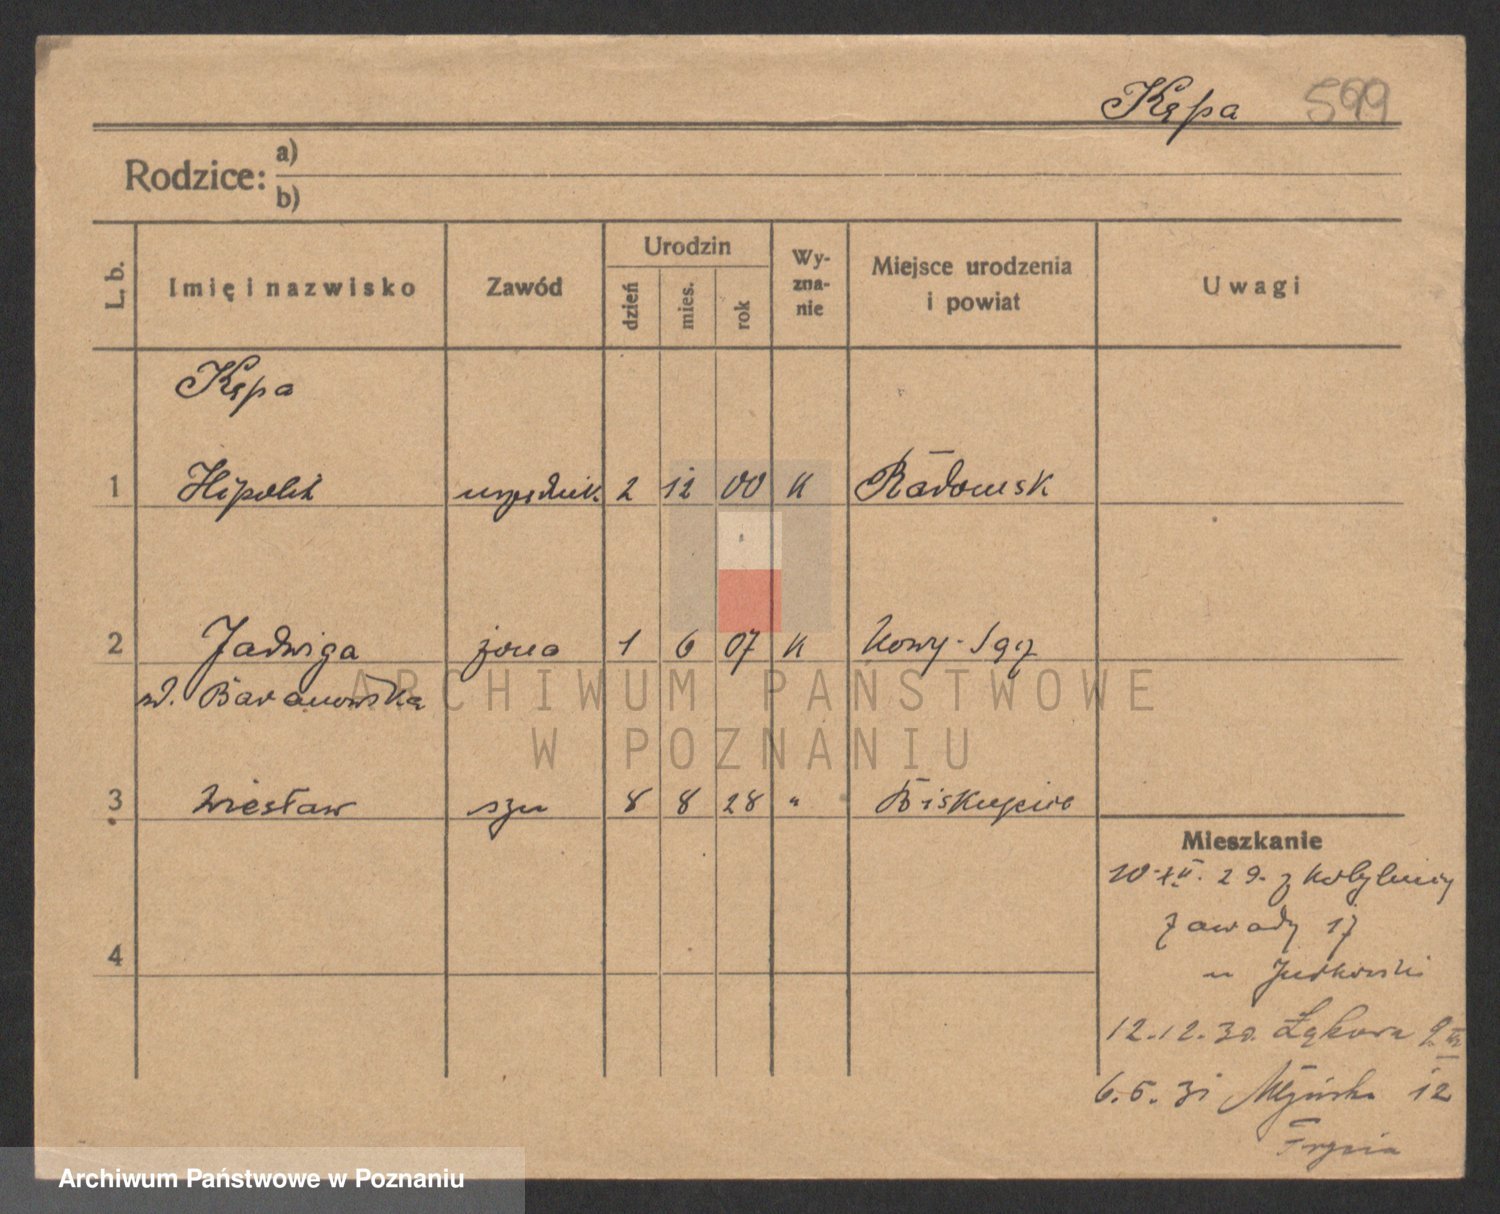 Kępa 599
Rodzice: a)
b)
L. b. Imię i nazwisko Zawód Urodzin dzień mies. rok Wy-zna-nie Miejsce urodzenia i powiat Uwagi
Kępa
1 Hipolit urzędnik 2 12 00 K Radomsk
2 Jadwiga żona 1 6 07 K Nowy-Sącz
ARCHIWUM PAŃSTWOWE
W POZNANIU
zd. Baranowska
3 Wiesław syn 8 8 28 "
Mieszkanie
10.XII.29. z Kobylnicy
Zawady 17
u Jurkowski
4
12.12.30. Łąkowa
6.5.31 Młyńska 12
Archiwum Państwowe w Poznaniu